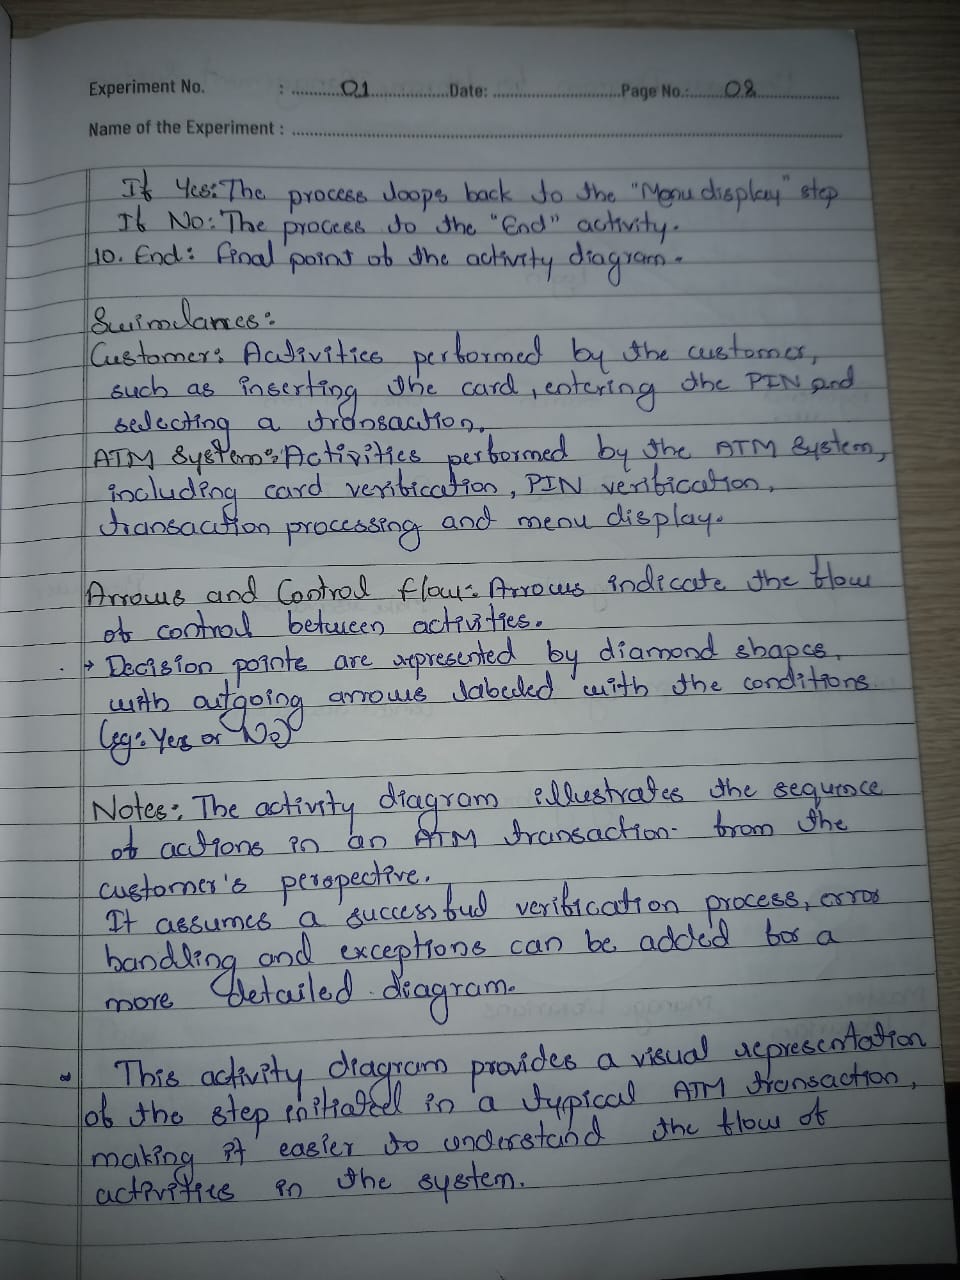 Experiment No. : 01 Date: Page No.: 08
Name of the Experiment :
If Yes: The process loops back to the "Menu display" step
If No: The process to the "End" activity.
10. End: final point of the activity diagram.
Swimlanes:
Customer: Activities performed by the customer,
such as inserting the card, entering the PIN and
selecting a transaction.
ATM System: Activities performed by the ATM System,
including card verification, PIN verification,
transaction processing and menu display.
Arrows and Control flow: Arrows indicate the flow
of control between activities.
→ Decision points are represented by diamond shapes,
with outgoing arrows labeled with the conditions
(eg: Yes or No)
Notes: The activity diagram illustrates the sequence
of actions in an ATM transaction from the
customer's perspective.
It assumes a successful verification process, error
handling and exceptions can be added for a
more detailed diagram.
This activity diagram provides a visual representation
of the step initiated in a typical ATM transaction,
making it easier to understand the flow of
activities in the system.